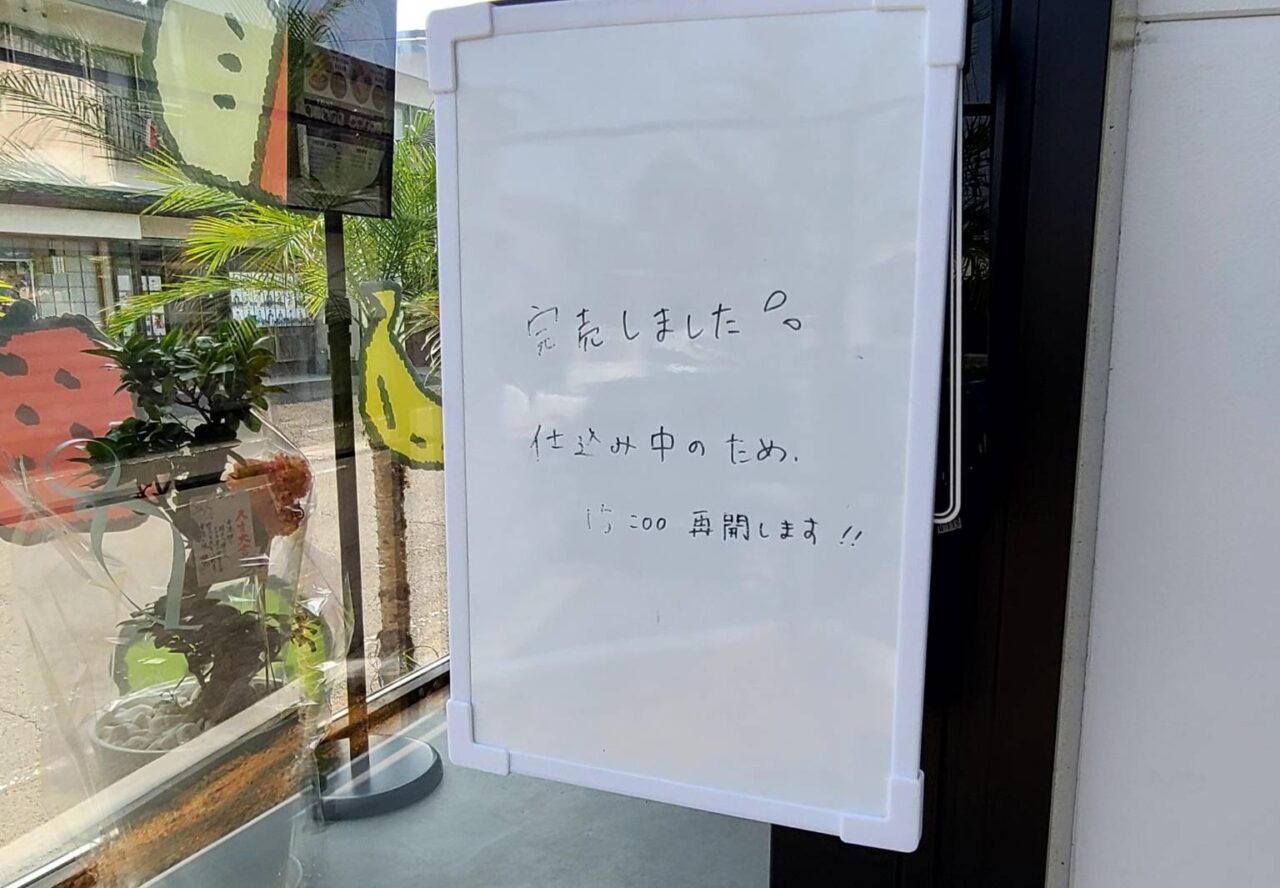 完売しました
仕込み中のため、
15:00 再開します!!